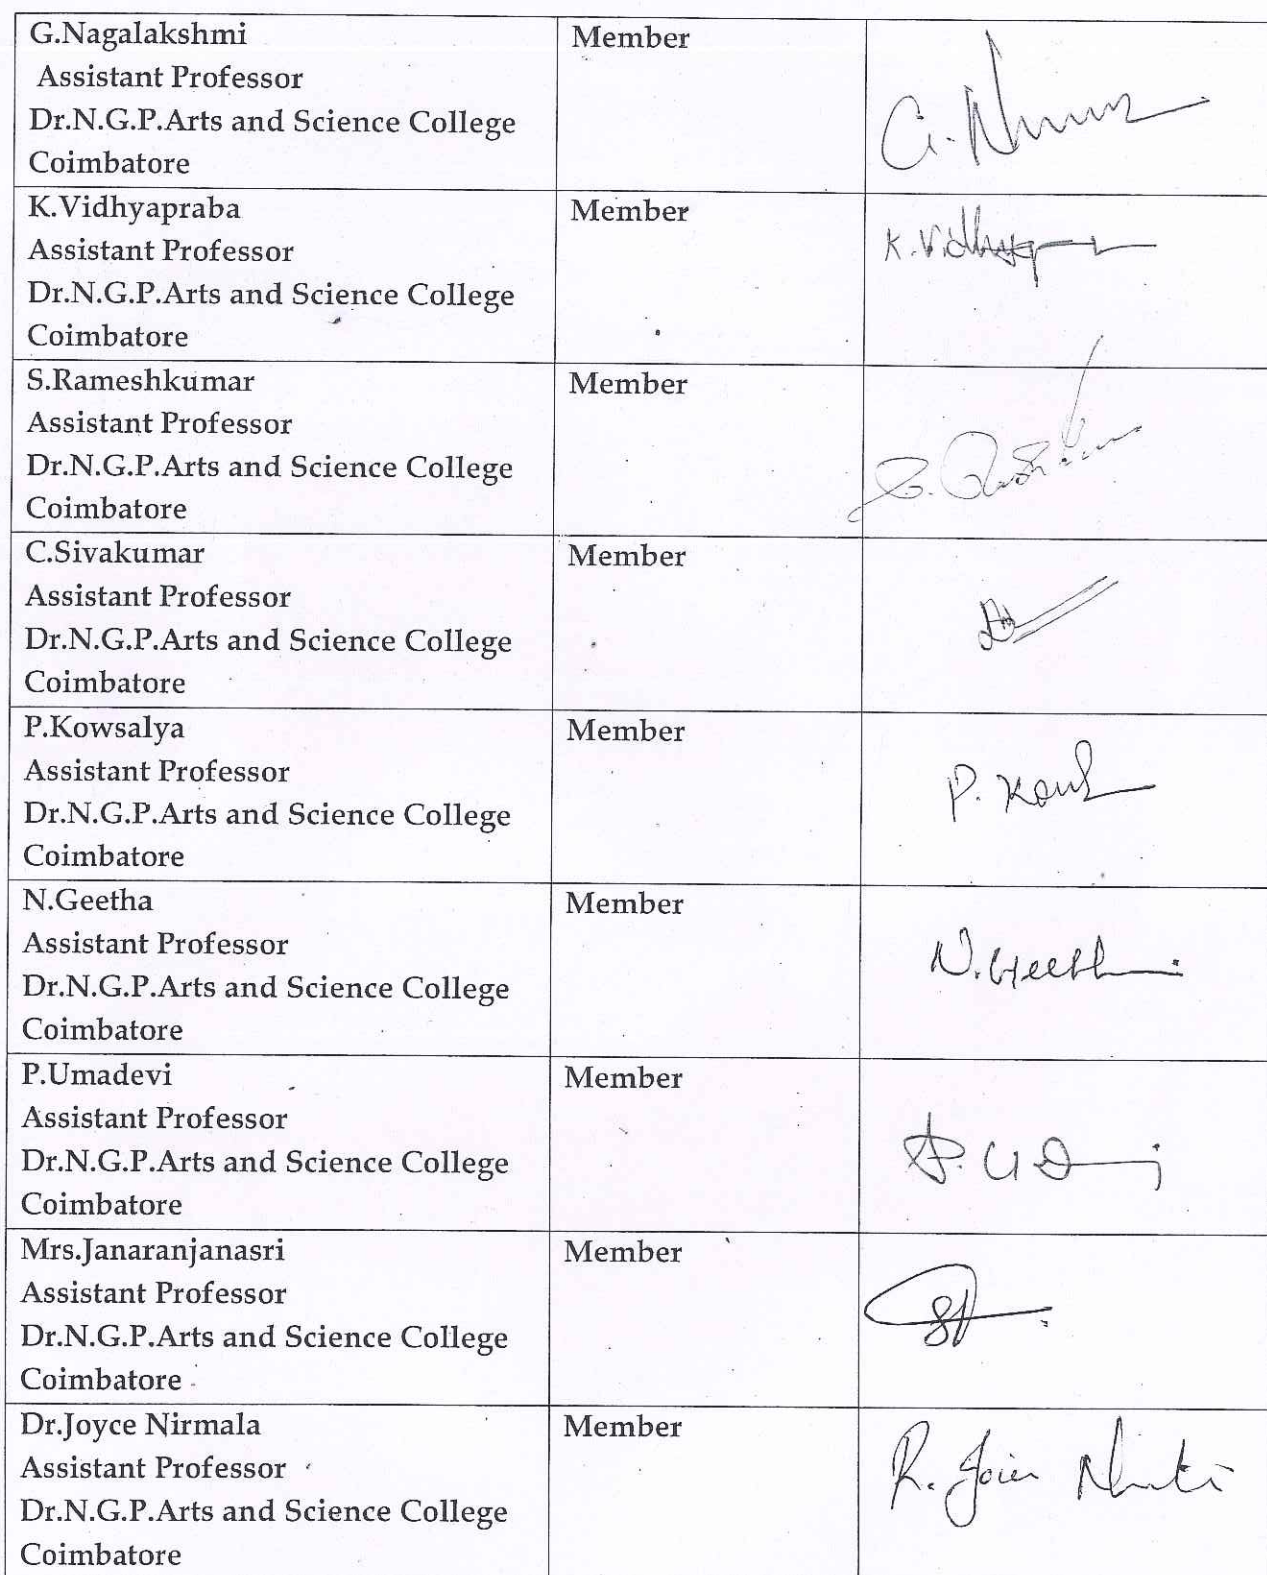 G.Nagalakshmi
Assistant Professor
Dr.N.G.P.Arts and Science College
Coimbatore
Member
G.
K.Vidhyapraba
Assistant Professor
Dr.N.G.P.Arts and Science College
Coimbatore
Member
K.
S.Rameshkumar
Assistant Professor
Dr.N.G.P.Arts and Science College
Coimbatore
Member
S.
C.Sivakumar
Assistant Professor
Dr.N.G.P.Arts and Science College
Coimbatore
Member
P.Kowsalya
Assistant Professor
Dr.N.G.P.Arts and Science College
Coimbatore
Member
P.
N.Geetha
Assistant Professor
Dr.N.G.P.Arts and Science College
Coimbatore
Member
N.
P.Umadevi
Assistant Professor
Dr.N.G.P.Arts and Science College
Coimbatore
Member
P.
Mrs.Janaranjanasri
Assistant Professor
Dr.N.G.P.Arts and Science College
Coimbatore
Member
Dr.Joyce Nirmala
Assistant Professor
Dr.N.G.P.Arts and Science College
Coimbatore
Member
R.